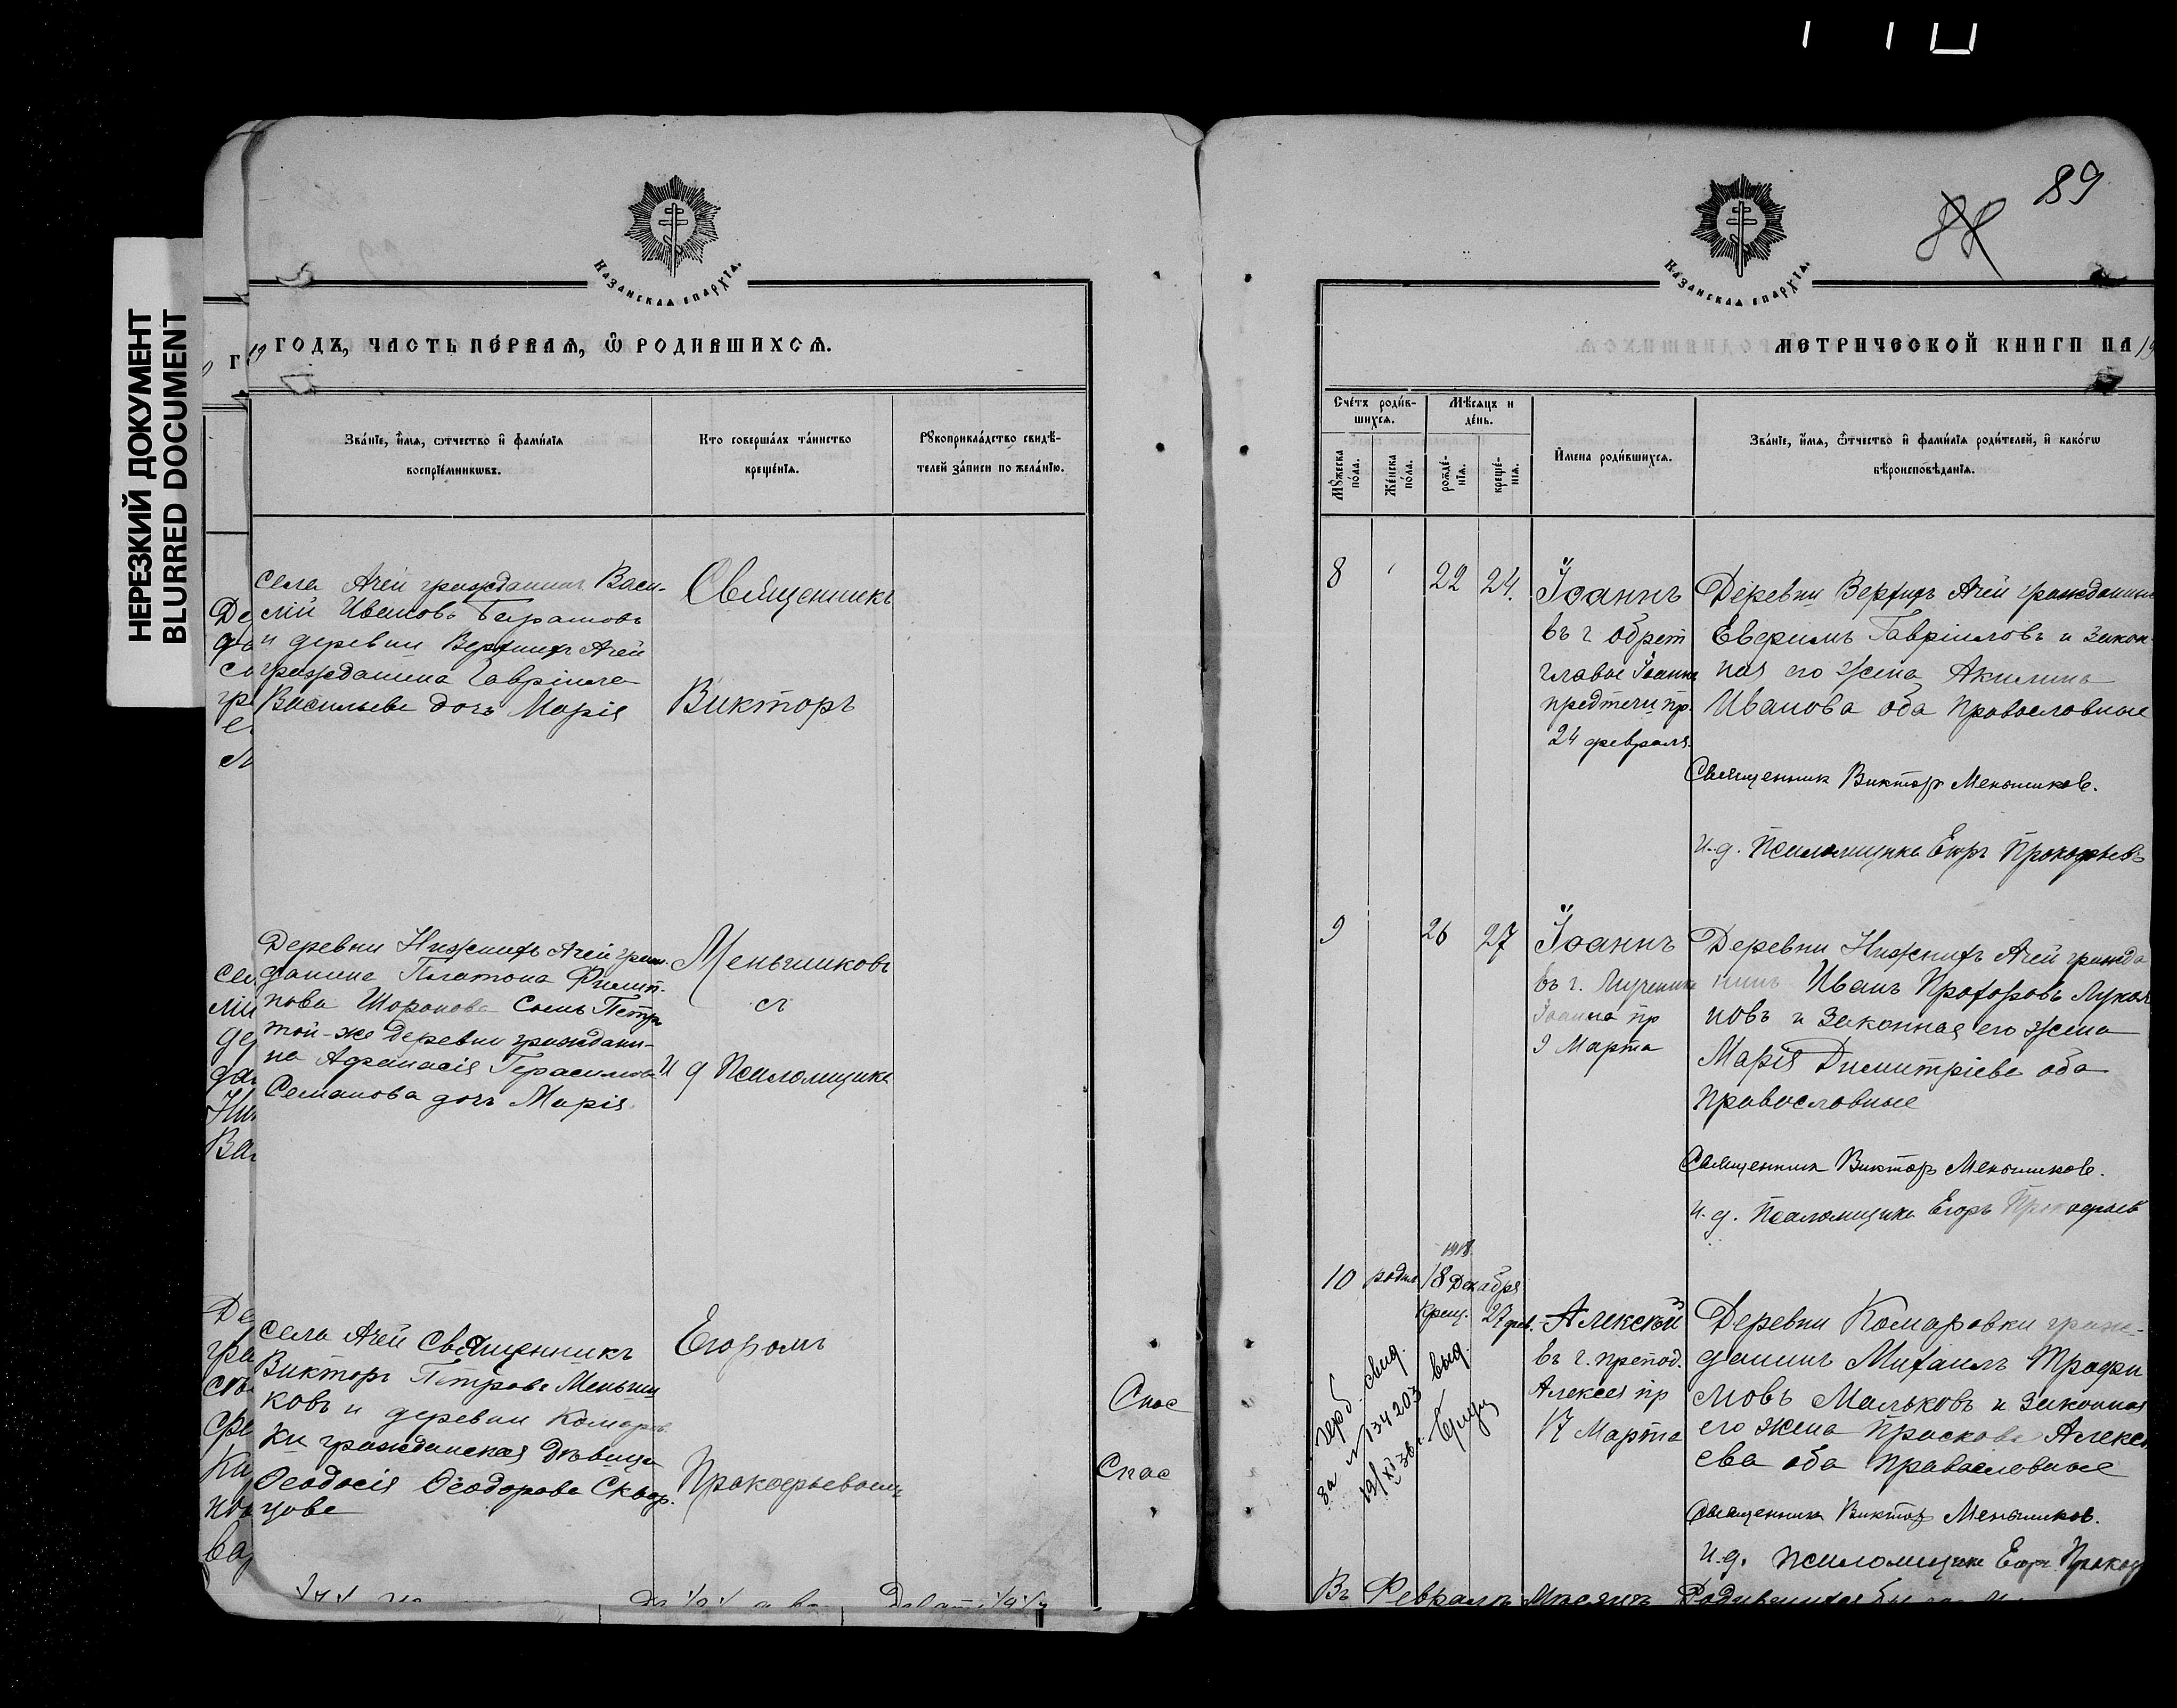 НЕРЕЗКИЙ ДОКУМЕНТ
BLURRED DOCUMENT
КАЗАНСКАЯ ЕПАРХІЯ.
19 ГОДЪ, ЧАСТЬ ПЕРВАЯ, Ѡ РОДИВШИХСЯ.
Званіе, имя, отчество и фамилія
воспріемниковъ.
Кто совершалъ таинство
крещенія.
Рукоприкладство свидѣ-
телей записи по желанію.
Села Ачей гражданинъ Васи-
лій Ивановъ
и деревни Верхнихъ Ачей
гражданина Гавріила
Васильева дочь Марія
Священникъ
Викторъ
Деревни Нижнихъ Ачей граж-
данина Платона Филип-
пова Шоронова сынъ Петръ
той-же деревни граждани-
на Афанасія Герасимова
Семанова дочь Марія.
Меньшиковъ
съ
и д Псаломщика
Села Ачей Священникъ
Викторъ Петровъ Меньши
ковъ и деревни Комаров
ки гражданская дѣвица
Ѳеодосія Ѳеодорова Сквор-
цова
Егоромъ
Прокофьевымъ
Спас
Спас
88 89
КАЗАНСКАЯ ЕПАРХІЯ.
МЕТРИЧЕСКОЙ КНИГИ НА 19
Счетъ родив-
шихся.
Мужеска
пола.
Женска
пола.
Мѣсяцъ и
день.
рожде-
нія.
креще-
нія.
Имена родившихся.
Званіе, имя, отчество и фамилія родителей, и какого
вѣроисповѣданія.
8 22 24.
Іоаннъ
въ ч. обрет
главы Іоанна
предтечи пр.
24 февраля.
Деревни Верхнихъ Ачей гражданинъ
Ефремъ Гавріиловъ и закон-
ная его жена Акилина
Иванова оба православные
Священникъ Викторъ Меньшиковъ.
и.д. Псаломщика Егоръ Прокофьевъ
9 26 27
Іоаннъ
въ ч. Мученика
Іоанна пр
9 Марта
Деревни Нижнихъ Ачей гражда
нинъ Иванъ Прохоровъ
новъ и законная его жена
Марія Димитріева оба
православные
Священникъ Викторъ Меньшиковъ.
и.д. Псаломщика Егоръ Прокофьев
1918.
10 родил 18 Декабря
Крещ. 27 фев.
Алексѣй
въ ч. препод.
Алексея пр
17 Марта
Деревни Комаровки граж-
данинъ Михаилъ Трофи
мовъ Мальковъ и законная
его жена Прасковья Алексѣ
ева оба православные
Священникъ Викторъ Меньшиковъ.
и.д. псаломщика Егоръ Прокоф
герб. свид.
за № 134203 выд.
19/XI 36г.
Въ Февралѣ мѣсяцѣ Родившихся